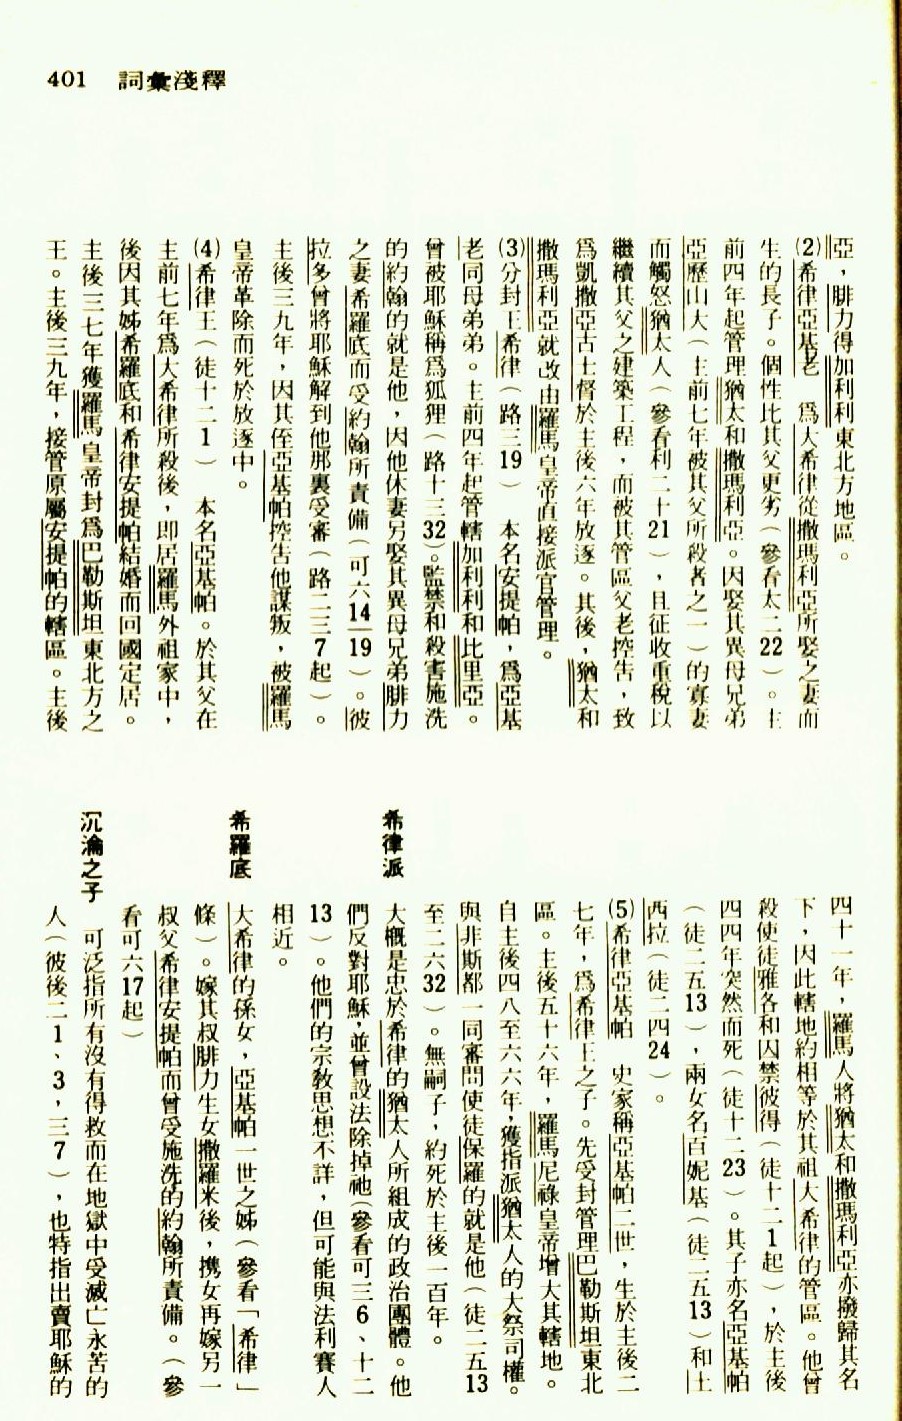 401 詞彙淺釋
亞，腓力得加利利東北方地區。
(2)希律亞基老　為大希律從撒瑪利亞所娶之妻而
生的長子。個性比其父更劣（參看太二22）。主
前四年起管理猶太和撒瑪利亞。因娶其異母兄弟
亞歷山大（主前七年被其父所殺者之一）的寡妻
而觸怒猶太人（參看利二十21），且征收重稅以
繼續其父之建築工程，而被其管區父老控告，致
為凱撒亞古士督於主後六年放逐。其後，猶太和
撒瑪利亞就改由羅馬皇帝直接派官管理。
(3)分封王希律（路三19）　本名安提帕，為亞基
老同母弟弟。主前四年起管轄加利利和比里亞。
曾被耶穌稱為狐狸（路十三32）。監禁和殺害施洗
的約翰的就是他，因他休妻另娶其異母兄弟腓力
之妻希羅底而受約翰所責備（可六14—19）。彼
拉多曾將耶穌解到他那裏受審（路二三7起）。
主後三九年，因其侄亞基帕控告他謀叛，被羅馬
皇帝革除而死於放逐中。
(4)希律王（徒十二1）　本名亞基帕。於其父在
主前七年為大希律所殺後，即居羅馬外祖家中，
後因其姊希羅底和希律安提帕結婚而回國定居。
主後三七年獲羅馬皇帝封為巴勒斯坦東北方之
王。主後三九年，接管原屬安提帕的轄區。主後
四十一年，羅馬人將猶太和撒瑪利亞亦撥歸其名
下，因此轄地約相等於其祖大希律的管區。他曾
殺使徒雅各和囚禁彼得（徒十二1起），於主後
四四年突然而死（徒十二23）。其子亦名亞基帕
（徒二五13），兩女名百妮基（徒二五13）和土
西拉（徒二四24）。
(5)希律亞基帕　史家稱亞基帕二世，生於主後二
七年，為希律王之子。先受封管理巴勒斯坦東北
區。主後五十六年，羅馬尼祿皇帝增大其轄地。
自主後四八至六六年，獲指派猶太人的大祭司權。
與非斯都一同審問使徒保羅的就是他（徒二五13
至二六32）。無嗣子，約死於主後一百年。
希律派　大概是忠於希律的猶太人所組成的政治團體。他
們反對耶穌，並曾設法除掉祂（參看可三6、十二
13）。他們的宗教思想不詳，但可能與法利賽人
相近。
希羅底　大希律的孫女，亞基帕一世之姊（參看「希律」
條）。嫁其叔腓力生女撒羅米後，携女再嫁另一
叔父希律安提帕而曾受施洗的約翰所責備。（參
看可六17起）
沉淪之子　可泛指所有沒有得救而在地獄中受滅亡永苦的
人（彼後二1、3，三7），也特指出賣耶穌的